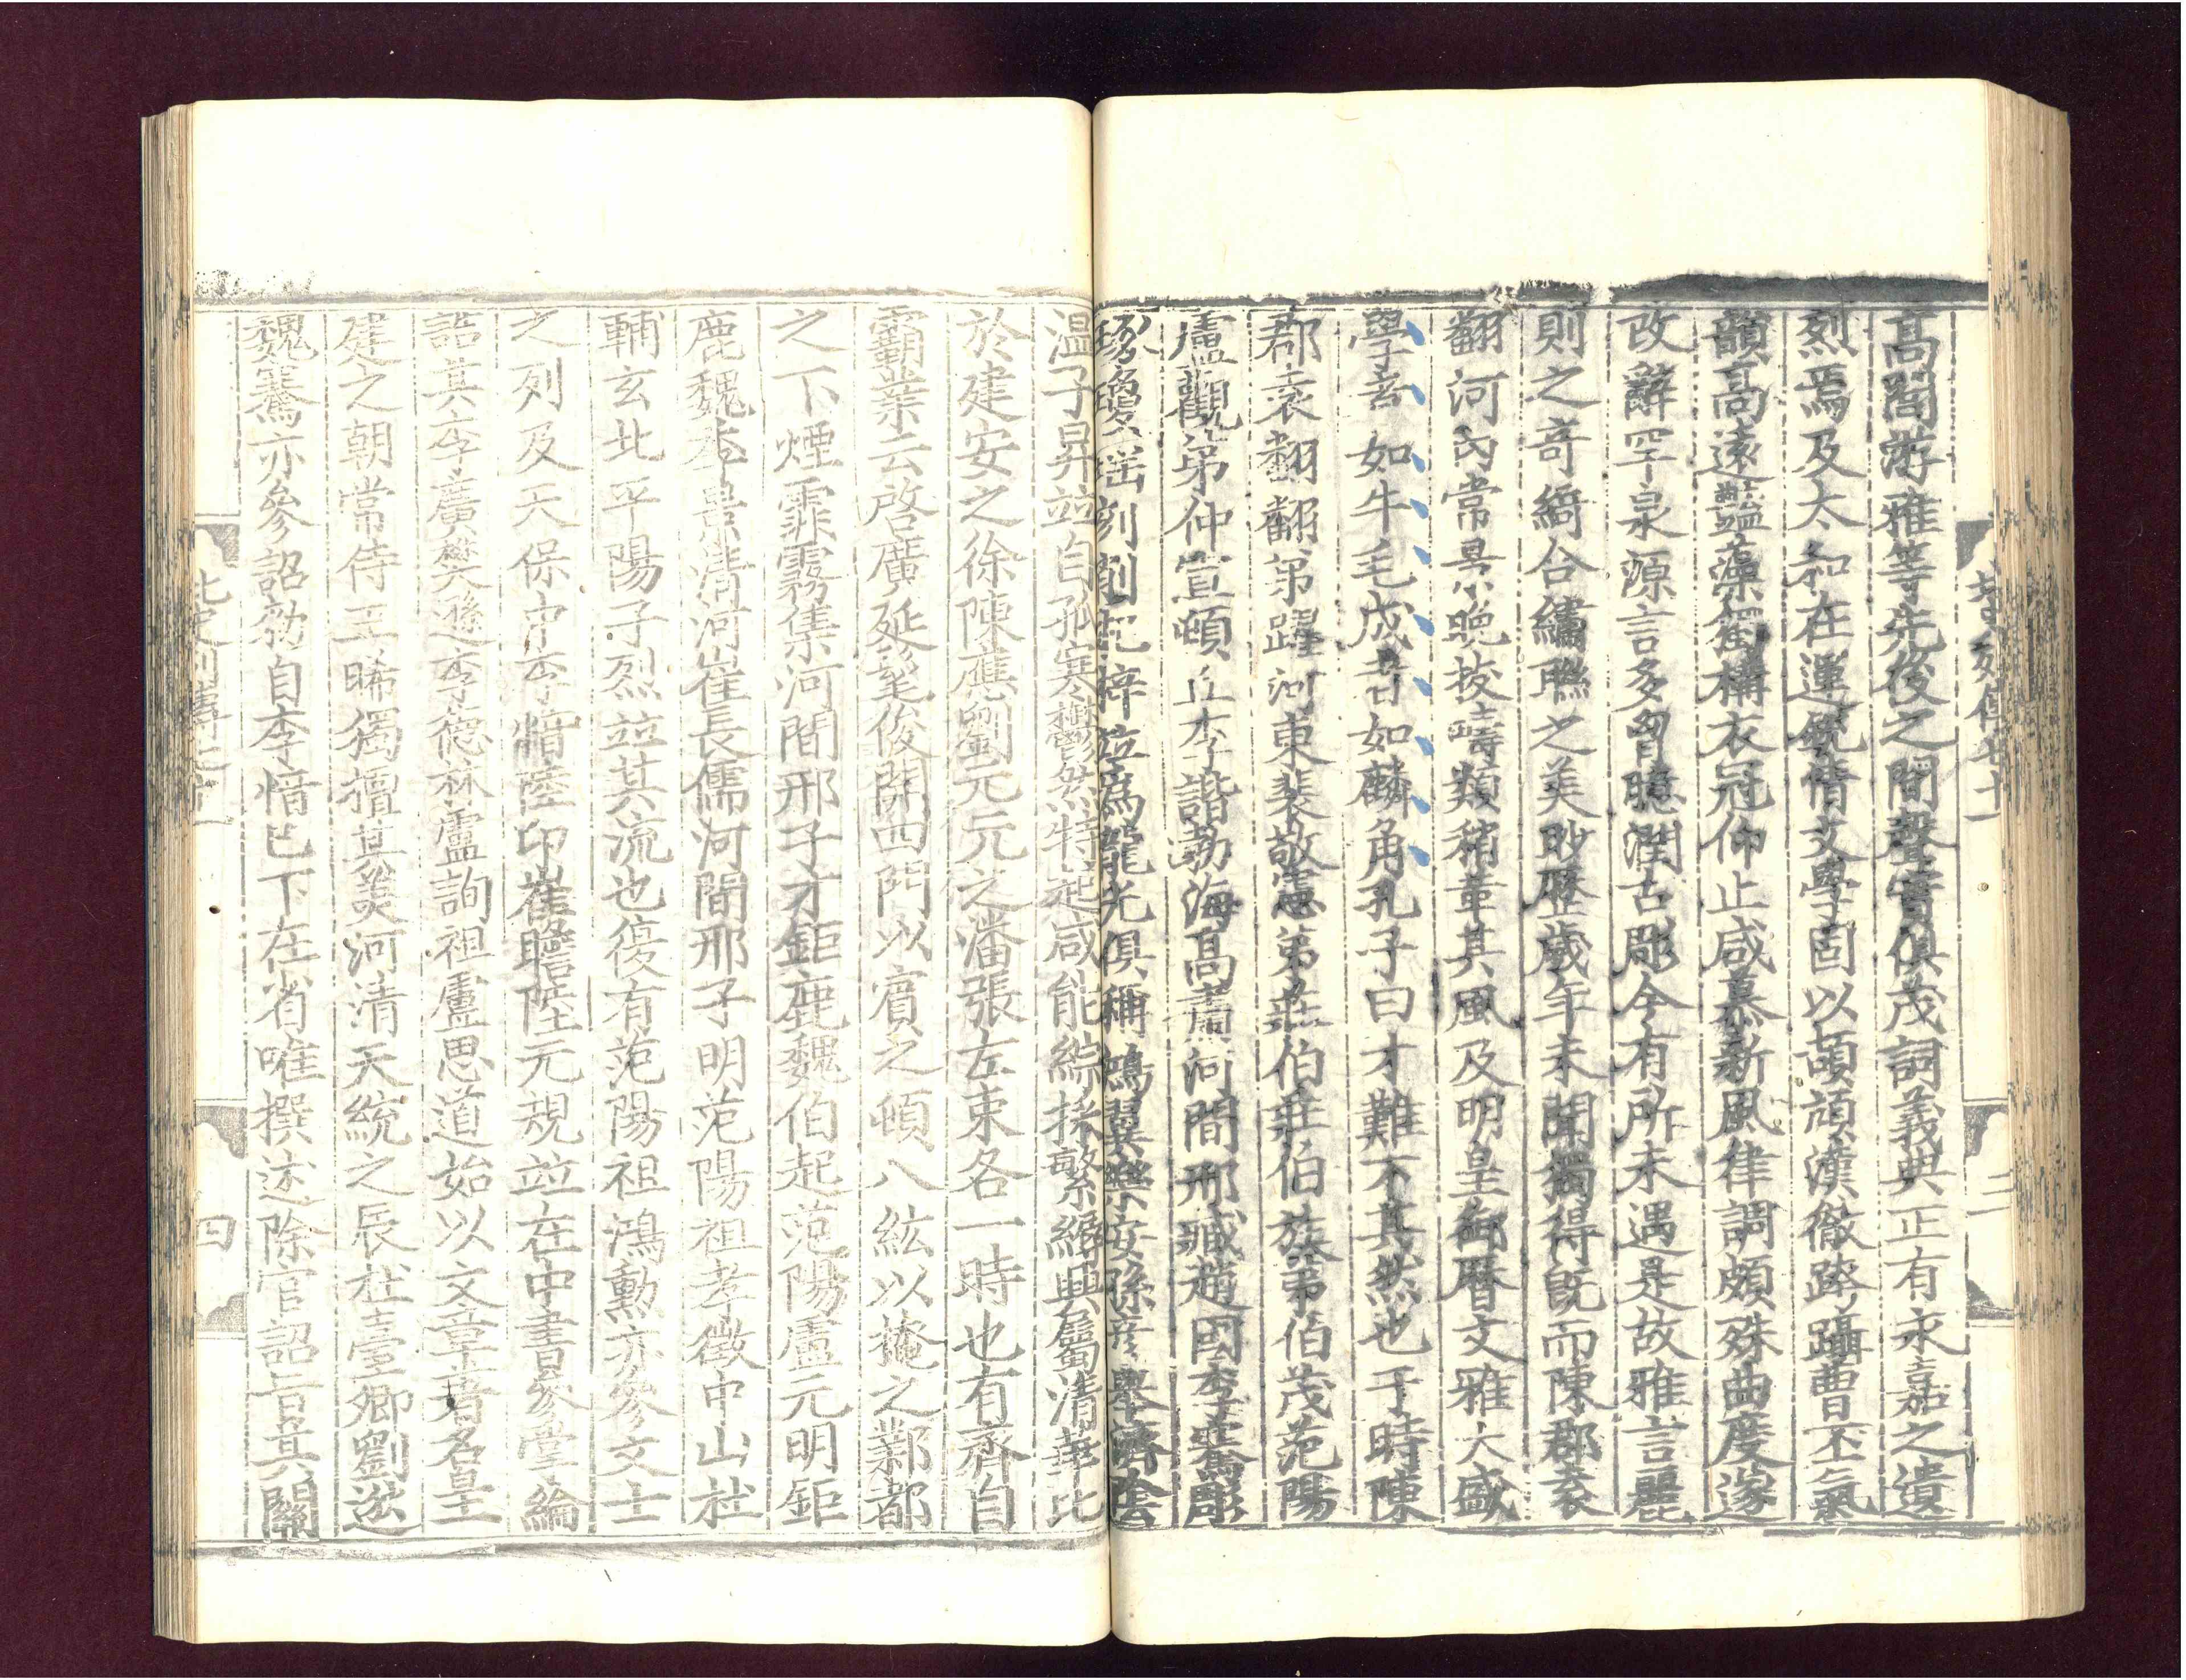 高閭游雅等先後之間聲實俱茂詞義典正有永嘉之遺
烈焉及太和在運銳情文學固以頡頏漢徹跨躡曹丕氣
韻高遠艷藻獨構衣冠仰止咸慕新風律調頗殊曲度遂
改辭罕泉源言多胷臆潤古彫今有所未遇是故雅言麗
則之奇綺合繡聯之美眇歷歲年未聞獨得旣而陳郡袁
翻河內常景晚拔疇類稍革其風及明皇御曆文雅大盛
學者如牛毛成者如麟角孔子曰才難不其然也于時陳
郡袁翻翻弟躍河東裴敬憲弟莊伯莊伯族弟伯茂范陽
盧觀弟仲宣頓丘李諧勃海高肅河間邢臧趙國李騫彫
琢瓊瑶刻削杞梓並爲龍光俱稱鴻翼樂安孫彦舉濟陰
温子昇並自孤寒鬱然特起咸能綜採繁縟興屬清華比
於建安之徐陳應劉元元之潘張左束各一時也有齊自
霸業云啓廣延髦俊開四門以賓之頓八紘以掩之鄴都
之下煙霏霧集河間邢子才鉅鹿魏伯起范陽盧元明鉅
鹿魏季景清河崔長儒河間邢子明范陽祖孝徵中山杜
輔玄北平陽子烈並其流也復有范陽祖鴻勳亦參文士
之列及天保中李愔陸卬崔瞻陸元規並在中書參掌綸
誥其李廣樊遜李德林盧詢祖盧思道始以文章著名皇
建之朝常侍王晞獨擅其美河清天統之辰杜臺卿劉逖
魏騫亦參詔勑自李愔已下在省唯撰述除官詔旨其關
北史列傳七十一
四